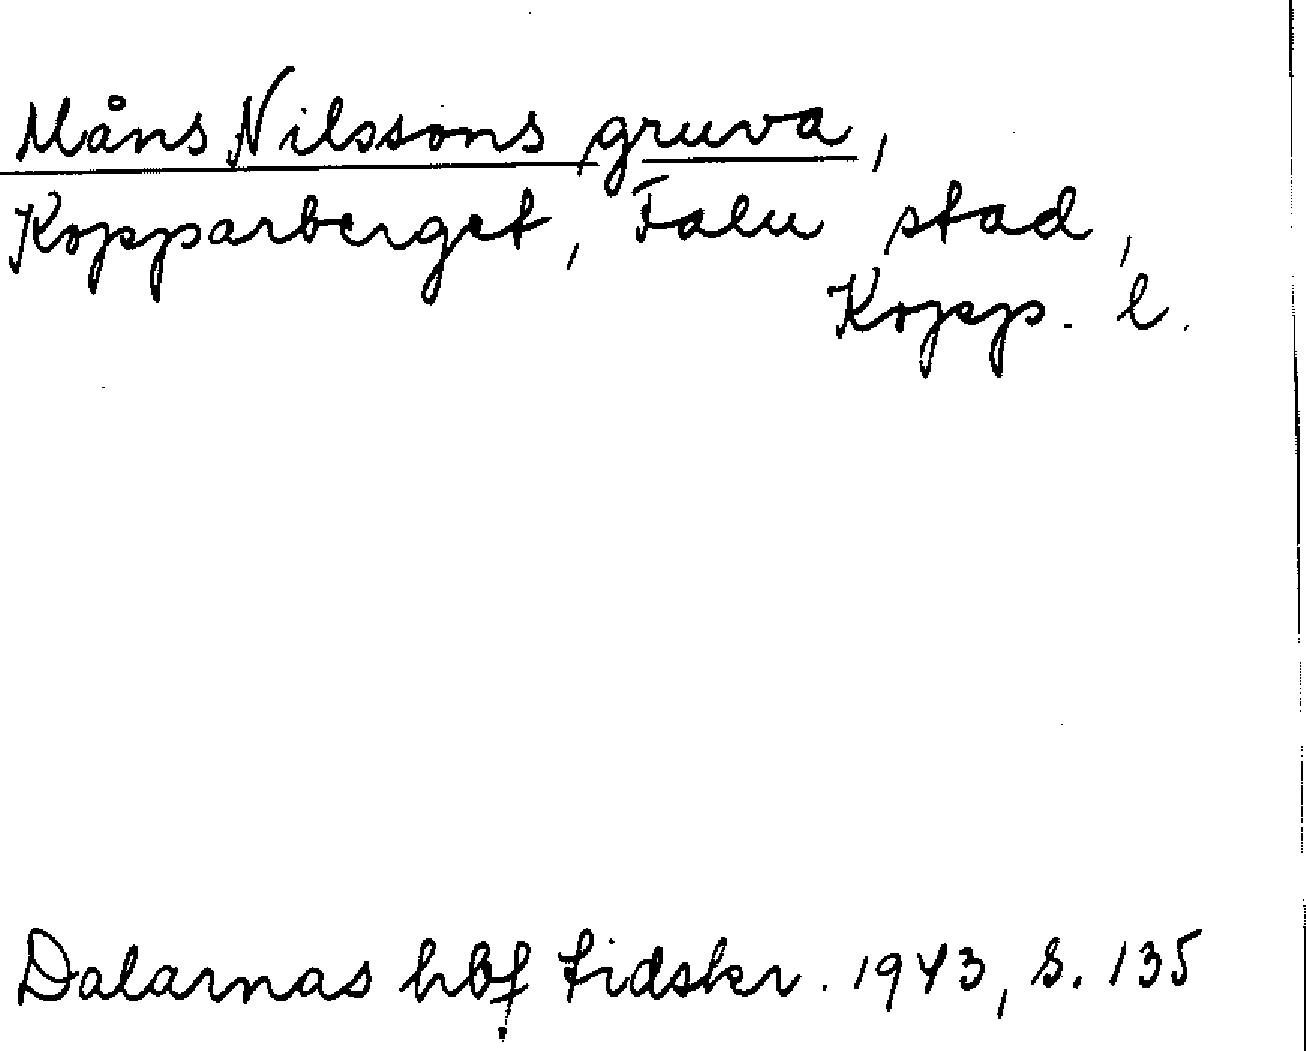 Måns Nilssons gruva,
Kopparberget, Falu stad,
Kopp. l.
Dalarnas hbf tidskr. 1943, s. 135